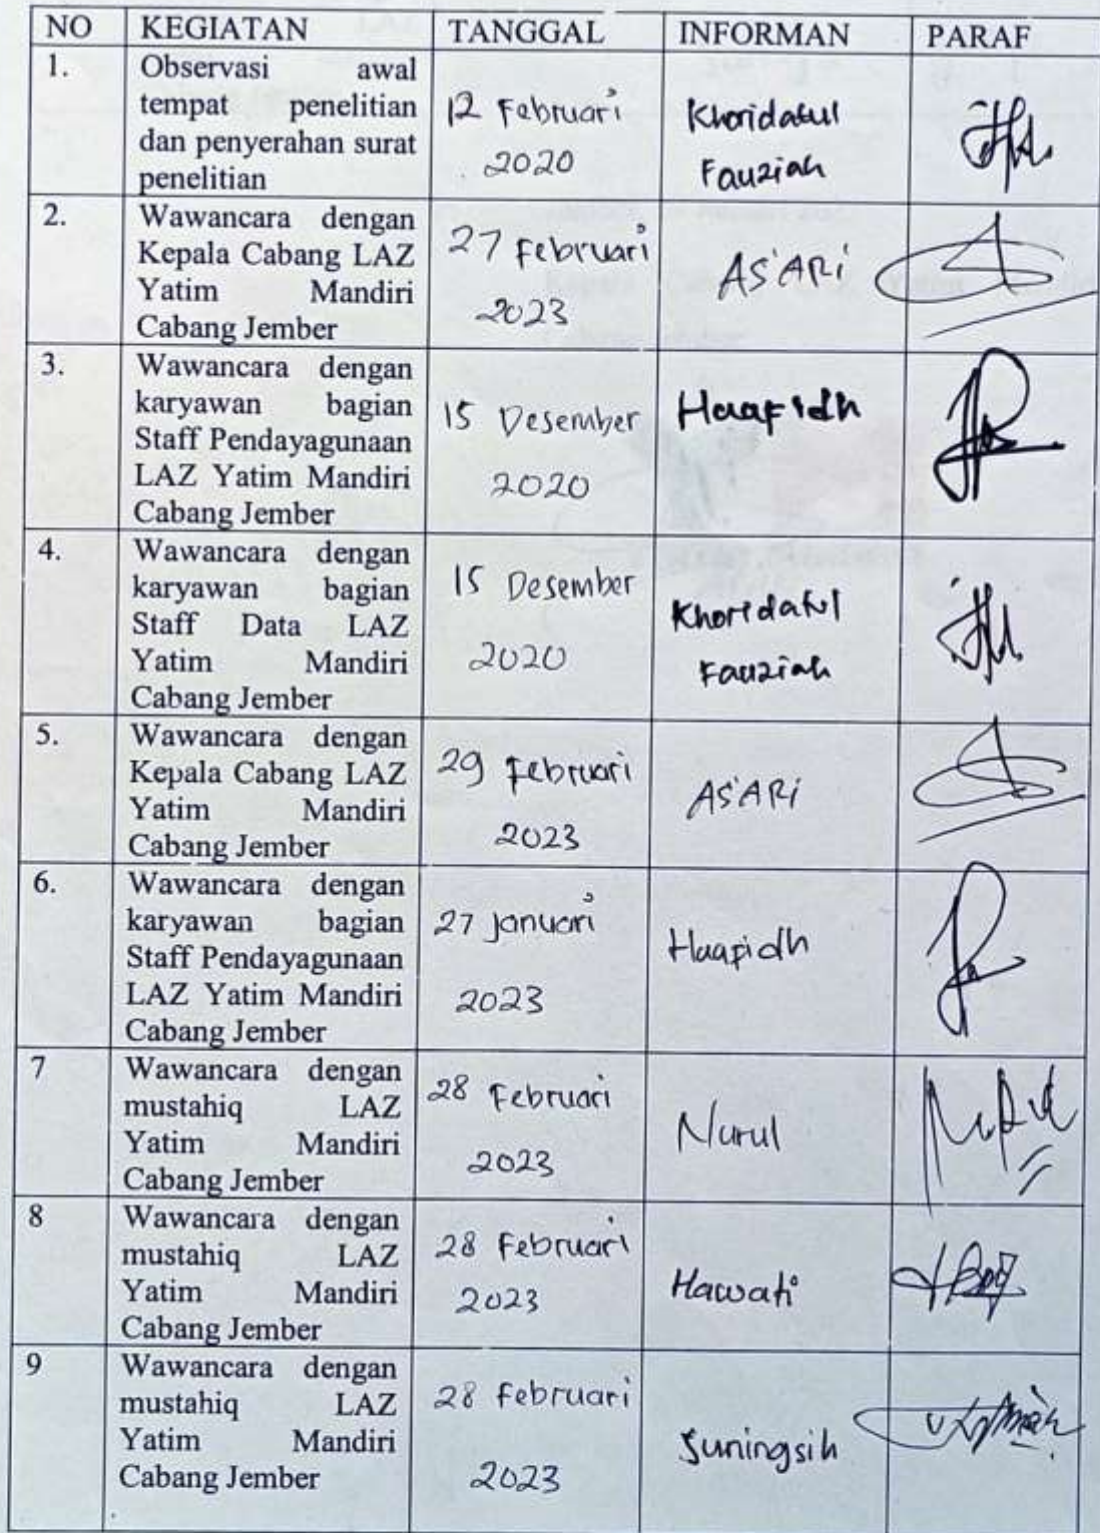 NO KEGIATAN TANGGAL INFORMAN PARAF
1. Observasi awal
tempat penelitian
dan penyerahan surat
penelitian
12 Februari
2020
Khoridatul
Fauziah
2. Wawancara dengan
Kepala Cabang LAZ
Yatim Mandiri
Cabang Jember
27 Februari
2023
AS'ARi
3. Wawancara dengan
karyawan bagian
Staff Pendayagunaan
LAZ Yatim Mandiri
Cabang Jember
15 Desember
2020
Haafidh
4. Wawancara dengan
karyawan bagian
Staff Data LAZ
Yatim Mandiri
Cabang Jember
15 Desember
2020
Khoridatul
Fauziah
5. Wawancara dengan
Kepala Cabang LAZ
Yatim Mandiri
Cabang Jember
29 Februari
2023
AS'ARi
6. Wawancara dengan
karyawan bagian
Staff Pendayagunaan
LAZ Yatim Mandiri
Cabang Jember
27 Januari
2023
Haafidh
7 Wawancara dengan
mustahiq LAZ
Yatim Mandiri
Cabang Jember
28 Februari
2023
Nurul
8 Wawancara dengan
mustahiq LAZ
Yatim Mandiri
Cabang Jember
28 Februari
2023
Hawati
9 Wawancara dengan
mustahiq LAZ
Yatim Mandiri
Cabang Jember
28 Februari
2023
Suningsih